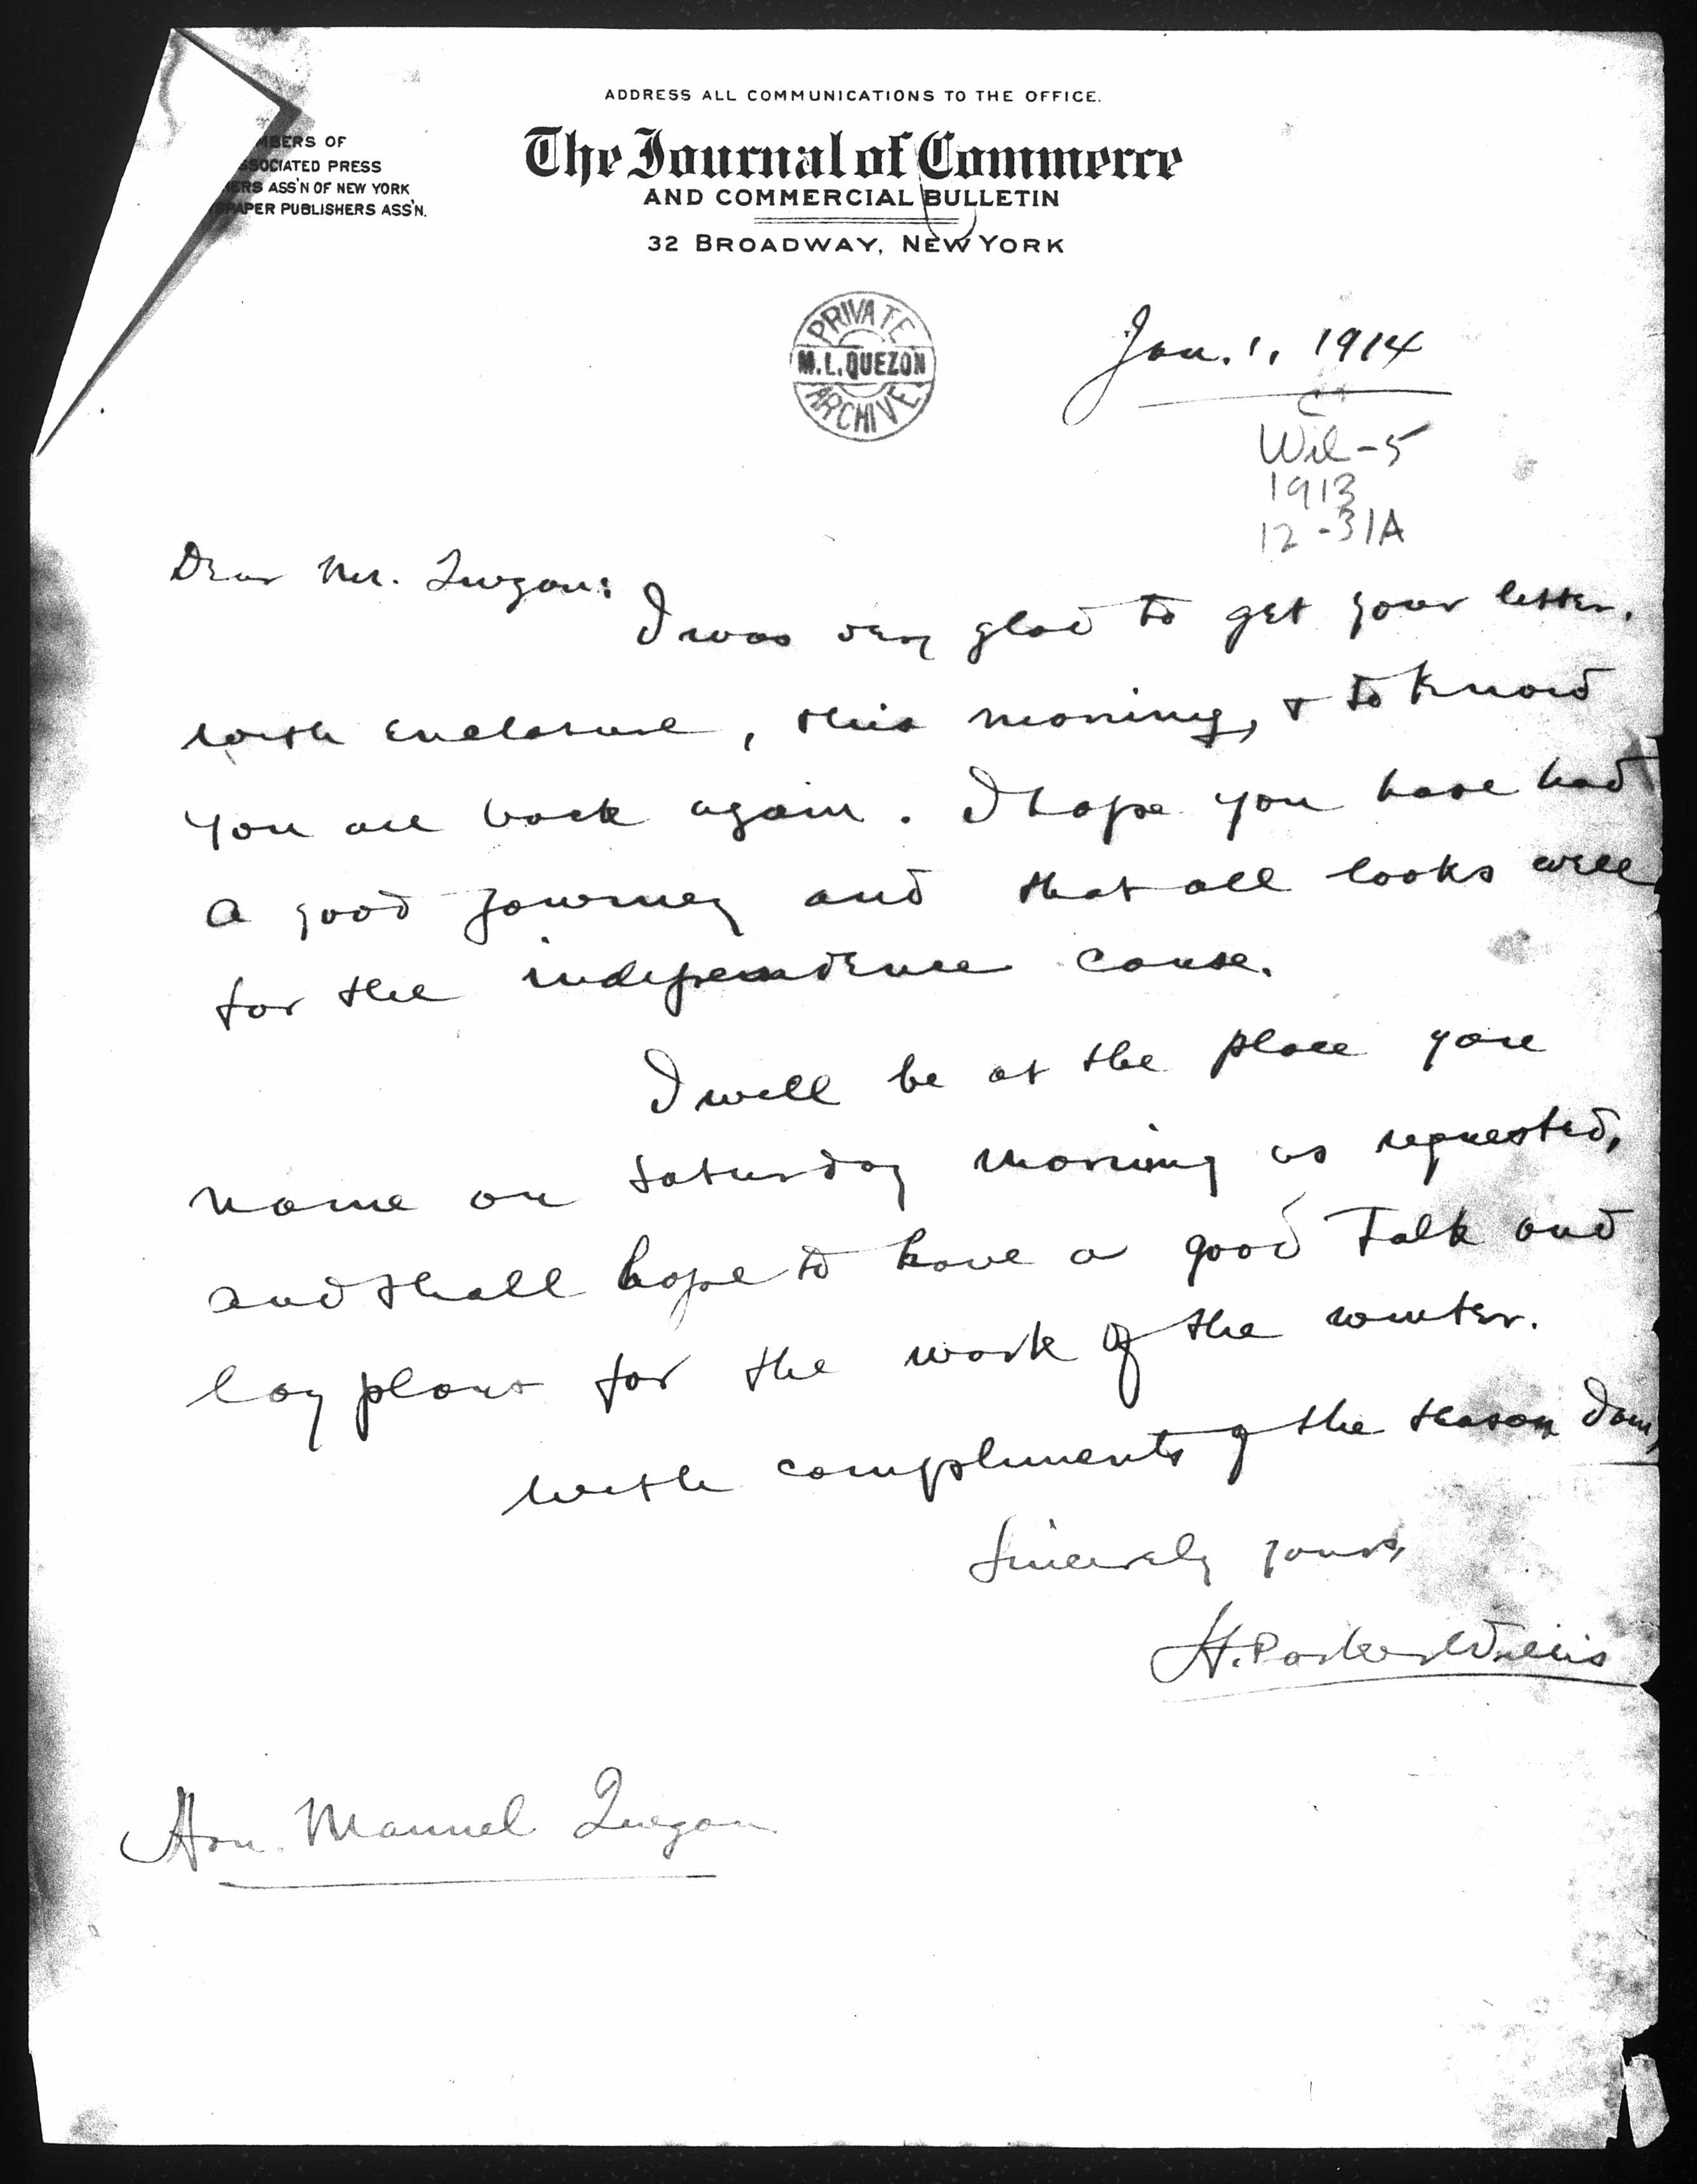 ADDRESS ALL COMMUNICATIONS TO THE OFFICE.
MBERS OF
SSOCIATED PRESS
ERS ASS'N OF NEW YORK
PAPER PUBLISHERS ASS'N.
The Journal of Commerce
AND COMMERCIAL BULLETIN
32 BROADWAY, NEW YORK
PRIVATE
M.L.QUEZON
ARCHIVE
Jan. 1, 1914
Wil-5
1913
12-31A
Dear Mr. Quezon:
I was very glad to get your letter,
with enclosure, this morning, & to know
you are back again. I hope you have had
a good journey and that all looks well
for the independence cause.
I will be at the place you
name on Saturday morning as requested,
and shall hope to have a good talk and
lay plans for the work of the winter.
With compliments of the season I am,
Sincerely yours,
H. Parker Willis
Hon. Manuel Quezon